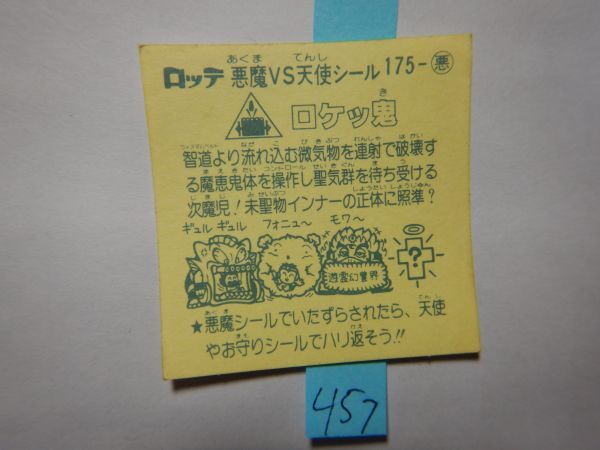 ロッテ 悪魔VS天使シール 175-悪
ロケッ鬼
智道より流れ込む微気物を連射で破壊す
る魔恵鬼体を操作し聖気群を待ち受ける
次魔児!未聖物インナーの正体に照準?
ギュル ギュル フォニュ〜 モワ〜
遊霊幻雲界
?
★悪魔シールでいたずらされたら、天使
やお守りシールでハリ返そう!!
457